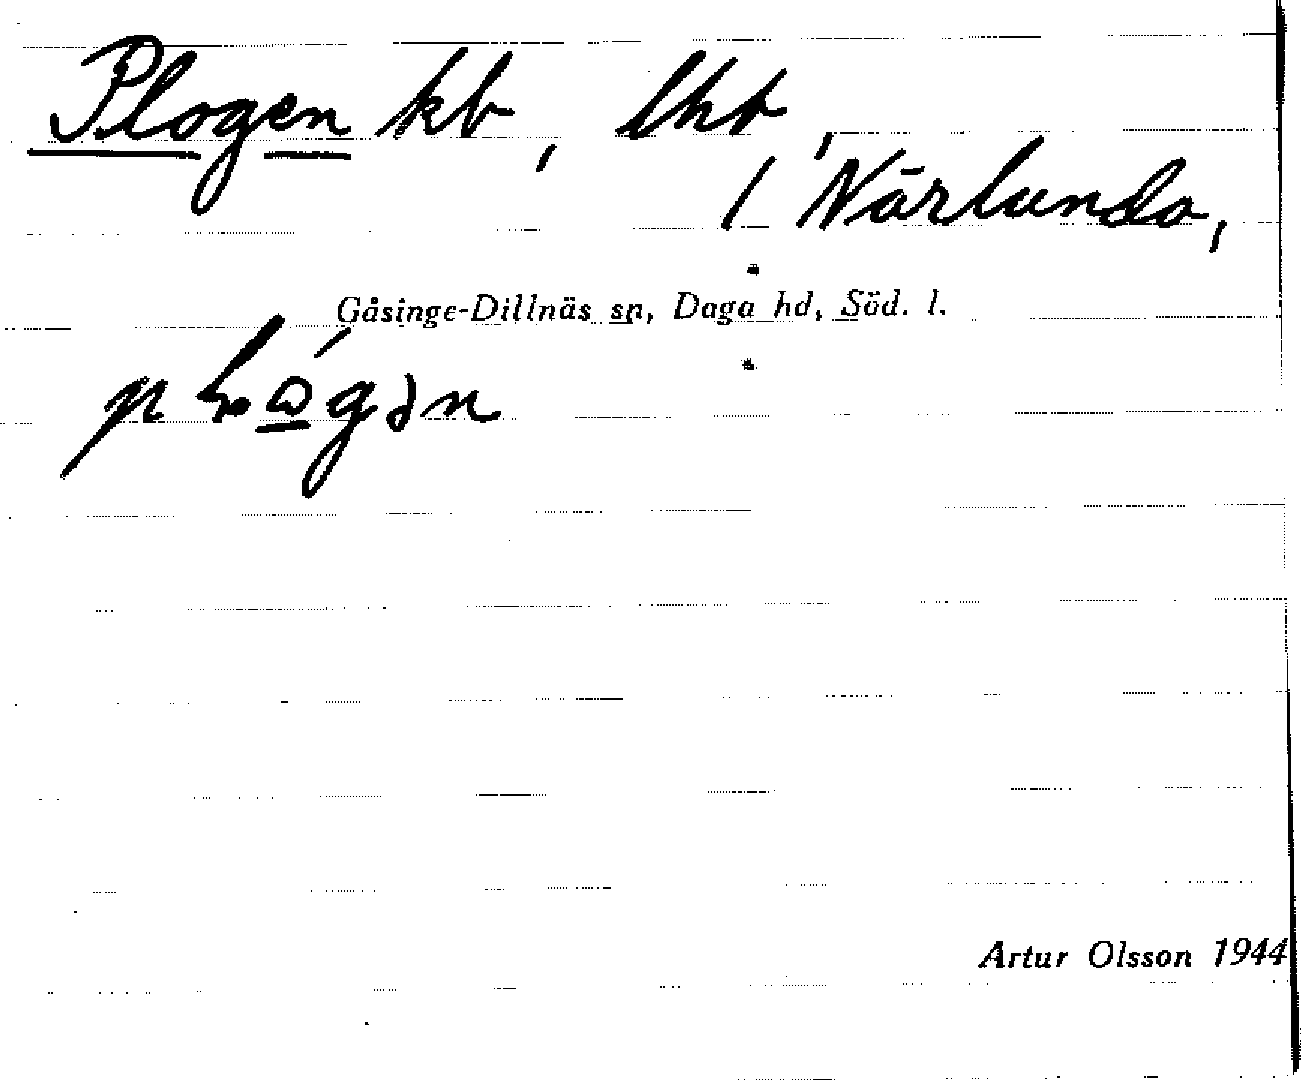 Plogen kb, lht,
/ Närlunda,
Gåsinge-Dillnäs sn, Daga hd, Söd. l.
Artur Olsson 1944